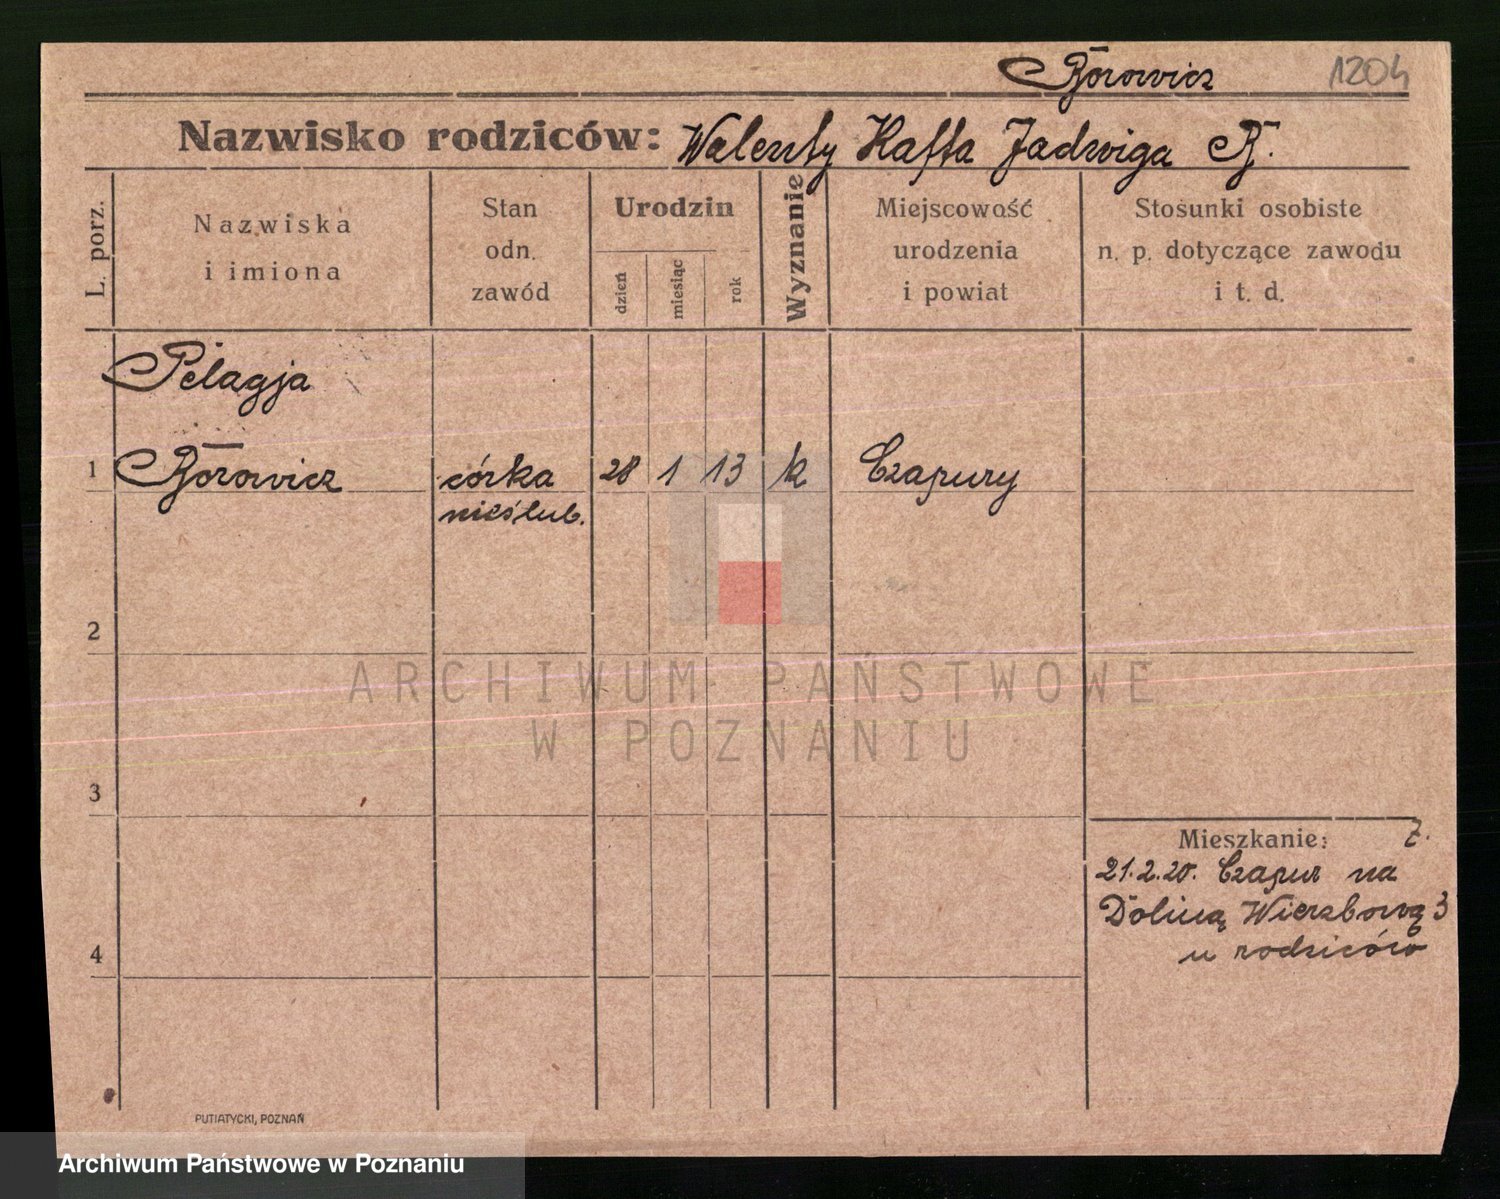 Borowicz 1204
Nazwisko rodziców: Walenty Haffa Jadwiga B.
L. porz.
Nazwiska
i imiona
Stan
odn.
zawód
Urodzin
dzień
miesiąc
rok
Wyznanie
Miejscowość
urodzenia
i powiat
Stosunki osobiste
n. p. dotyczące zawodu
i t. d.
Pelagja
1 Borowicz córka 28 1 13 k Czapury
nieślub.
2
ARCHIWUM PAŃSTWOWE
W POZNANIU
3
Mieszkanie: z.
21.2.20. Czapur na
Dolinę Wierzbową 3
u rodziców
4
PUTIATYCKI, POZNAŃ
Archiwum Państwowe w Poznaniu